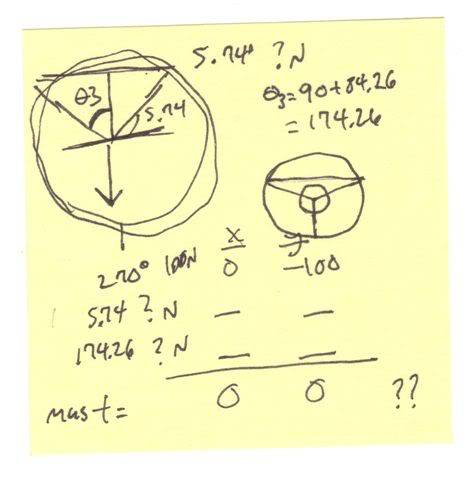 5.74° ? N
θ3
5.74
θ3 = 90 + 84.26
= 174.26
x y
270° 100N 0 -100
5.74 ? N — —
174.26 ? N — —
must = 0 0 ??